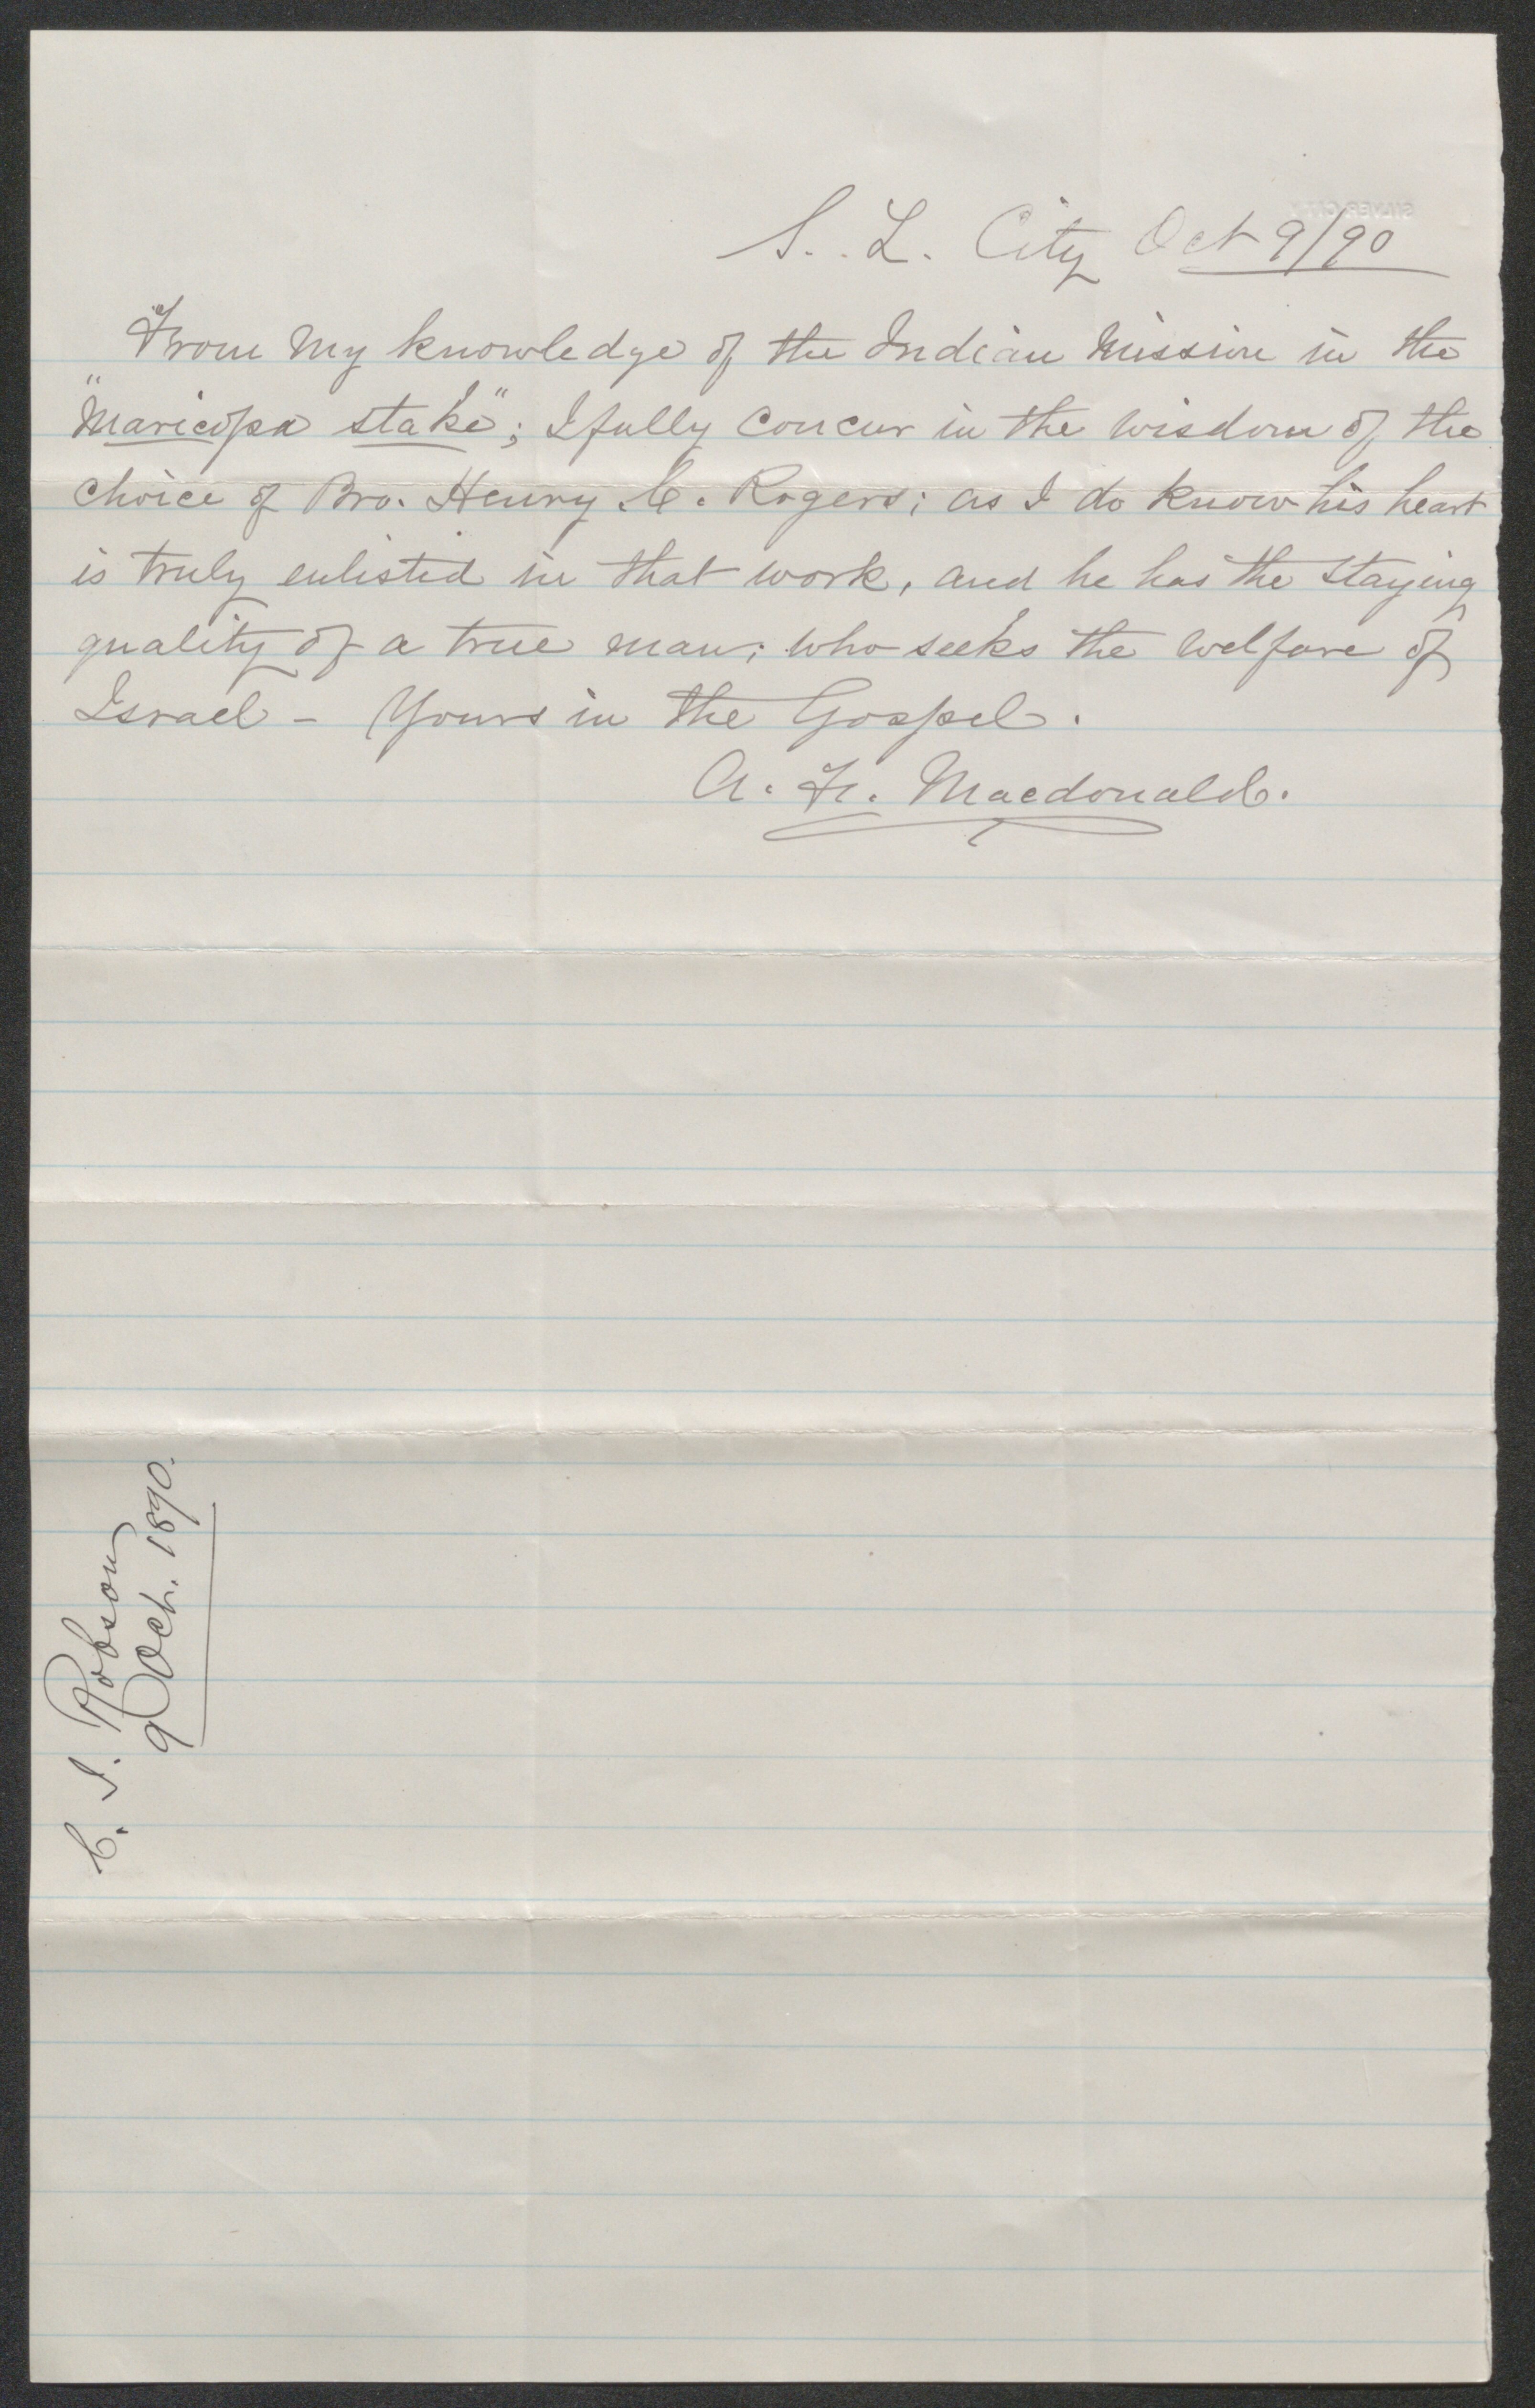 S. L. City Oct 9/90
From my knowledge of the Indian Mission in the
"Maricopa stake"; I fully concur in the wisdom of the
choice of Bro. Henry C. Rogers; as I do know his heart
is truly enlisted in that work, and he has the staying
quality of a true man; who seeks the welfare of
Israel - Yours in the Gospel.
A. F. Macdonald.
C. I. Robson
9 Oct. 1890.